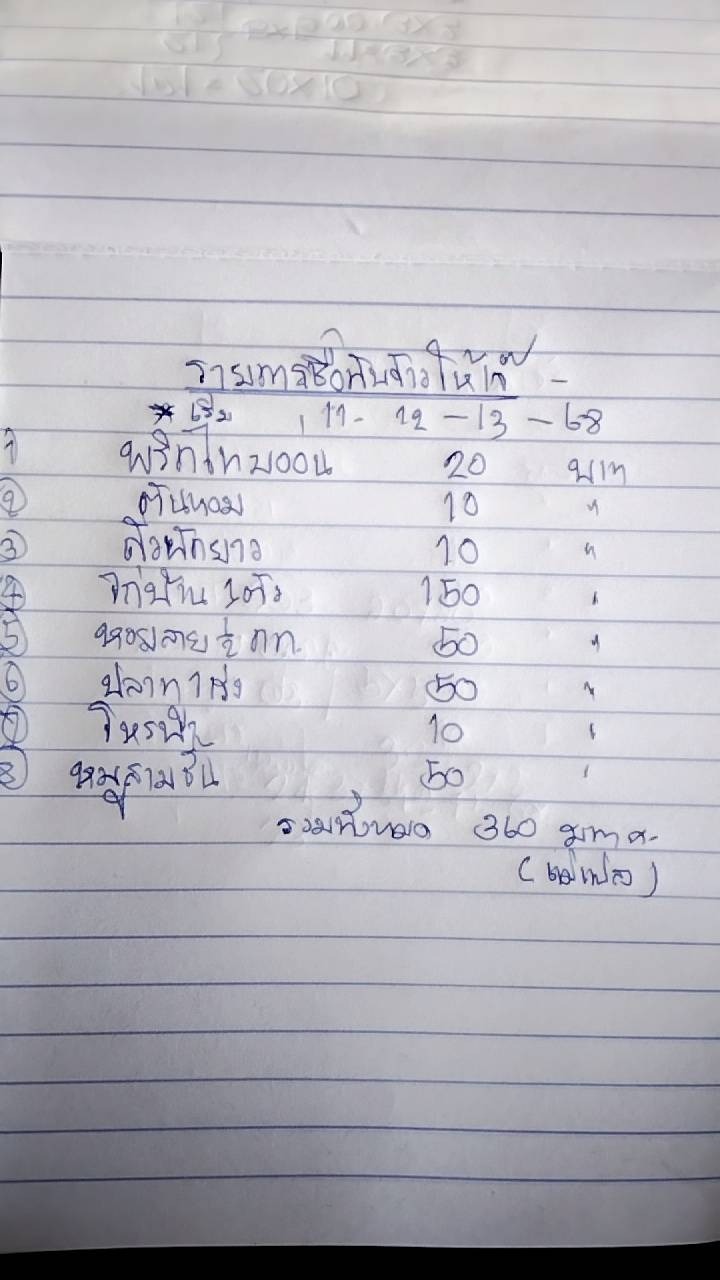 รายการซื้อกับข้าวให้เจ๊ -
* เริ่ม , 11 - 12 - 13 - 68
1 พริกไทยออน 20 บาท
② ต้นหอม 10 "
③ ถั่วฝักยาว 10 "
④ ไก่บ้าน 1ตัว 150 "
⑤ หอยลาย ½ กก. 50 "
⑥ ปลาทู 1 เข่ง 50 "
⑦ โหรพา 10 "
⑧ หมูสามชั้น 50 "
รวมทั้งหมด 360 บาท